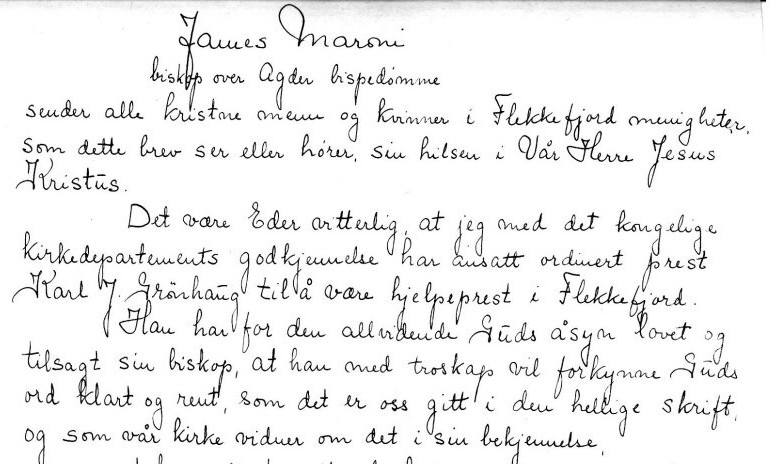 James Maroni
biskop over Agder bispedømme
sender alle kristne menn og kvinner i Flekkefjord menigheter,
som dette brev ser eller hører, sin hilsen i Vår Herre Jesus
Kristus.
Det være Eder vitterlig, at jeg med det kongelige
kirkedepartements godkjennelse har ansatt ordinert prest
Karl J. Grönhaug til å være hjelpeprest i Flekkefjord.
Han har for den allvidende Guds åsyn lovet og
tilsagt sin biskop, at han med troskap vil forkynne Guds
ord klart og rent, som det er oss gitt i den hellige skrift,
og som vår kirke vidner om det i sin bekjennelse,